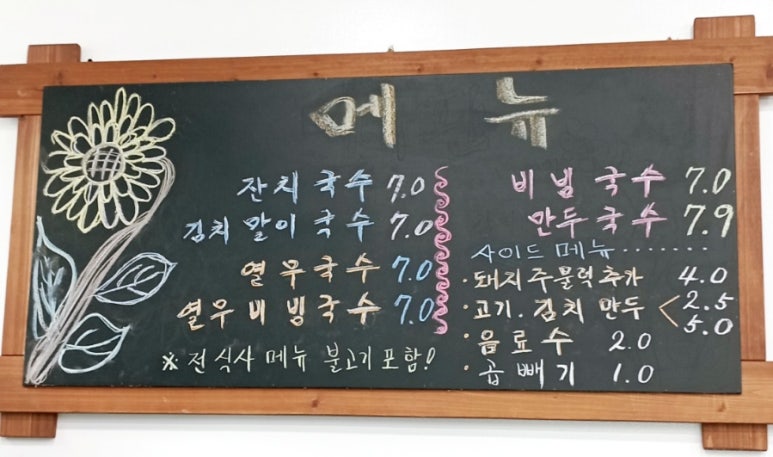 메뉴
잔치국수 7.0
김치말이국수 7.0
열무국수 7.0
열무비빔국수 7.0
※전식사 메뉴 불고기포함!
비빔국수 7.0
만두국수 7.9
사이드메뉴.......
·돼지주물럭추가 4.0
·고기.김치만두 < 2.5
5.0
·음료수 2.0
·곱빼기 1.0